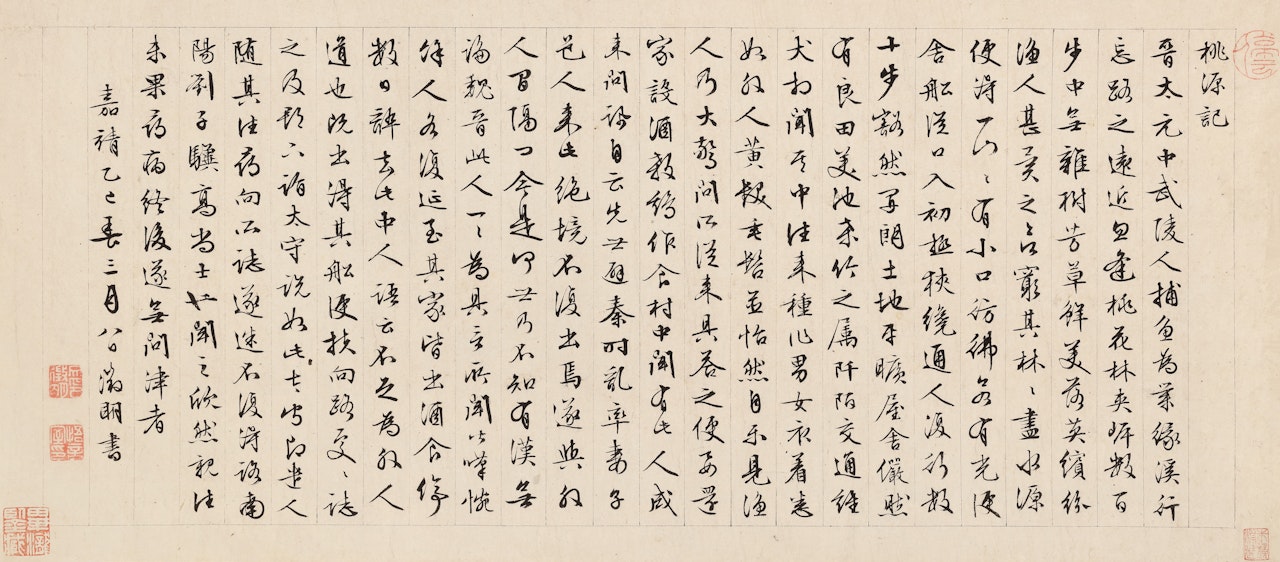 桃源記
晉太元中武陵人捕魚為業緣溪行
忘路之遠近忽逢桃花林夾岸數百
步中無雜樹芳草鮮美落英繽紛
漁人甚異之窮其林〻盡水源
便得一山〻有小口彷彿若有光便
舍船從口入初極狹纔通人復行數
十步豁然開朗土地平曠屋舍儼然
有良田美池桑竹之屬阡陌交通雞
犬相聞其中往來種作男女衣著悉
如外人黃髮垂髫並怡然自樂見漁
人乃大驚問所從來具答之便要還
家設酒殺雞作食村中聞有此人咸
來問訊自云先世避秦時亂率妻子
邑人來此絕境不復出焉遂與外
人間隔問今是何世乃不知有漢無
論魏晉此人一〻為具言所聞皆嘆惋
餘人各復延至其家皆出酒食停
數日辭去此中人語云不足為外人
道也既出得其船便扶向路處〻誌
之及郡下詣太守說如此太守即遣人
隨其往尋向所誌遂迷不復得路南
陽劉子驥高尚士也聞之欣然親往
未果尋病終後遂無問津者
嘉靖乙巳春三月八日徵明書